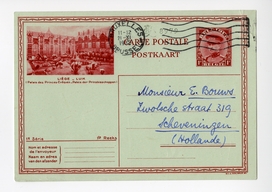 BRUXELLES
CARTE POSTALE
POSTKAART
BELGIE
LIÈGE - LUIK
Palais des Princes-Evêques - Paleis der Prinsbisschoppen
1e Série 1e Reeks
Nom et adresse
de l'envoyeur
Naam en adres
van den afzender
Monsieur En Bouws,
Zwolsche straat 319,
Scheveningen
(Hollande)